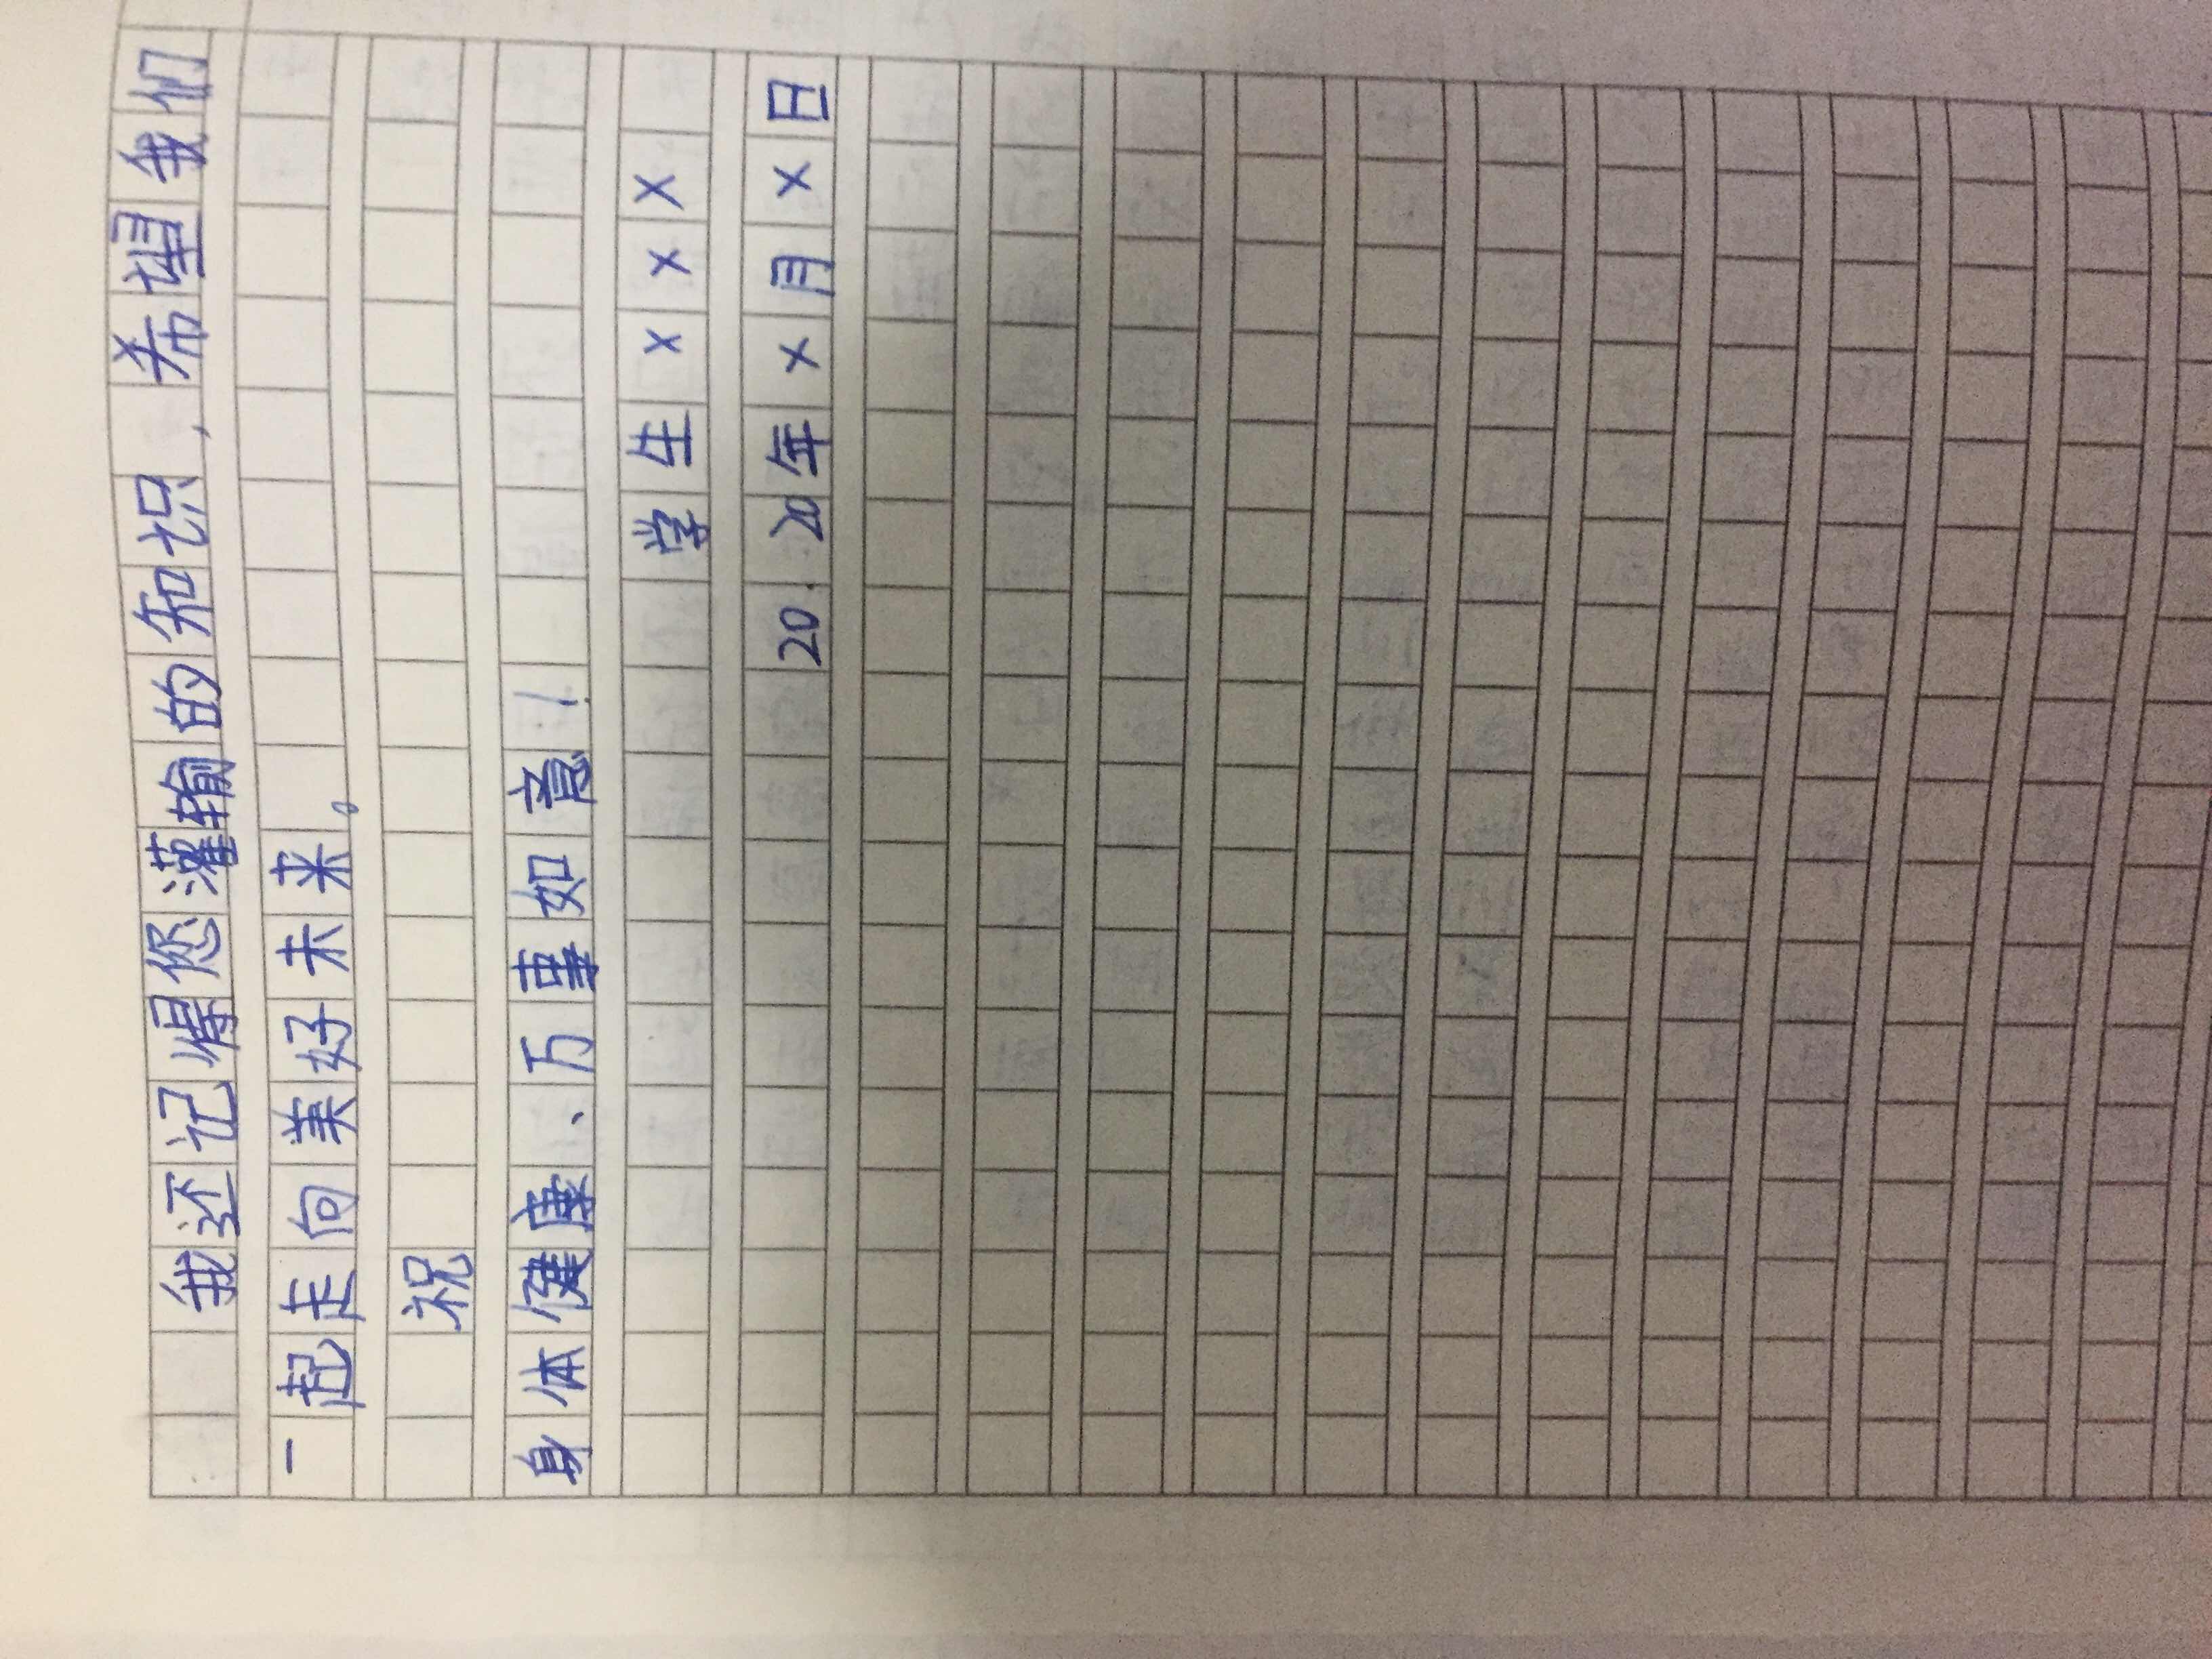 我还记得您灌输的知识，希望我们
一起走向美好未来。
祝
身体健康、万事如意！
学生×××
2020年×月×日